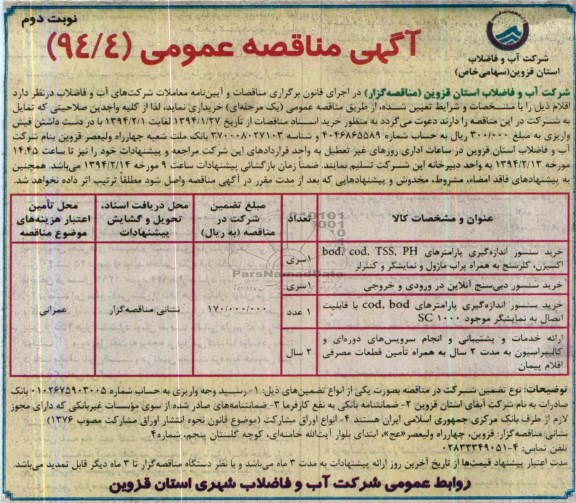 نوبت دوم
آگهی مناقصه عمومی (۹۴/۴)
شرکت آب و فاضلاب
استان قزوین(سهامی‌خاص)
شرکت آب و فاضلاب استان قزوین (مناقصه‌گزار) در اجرای قانون برگزاری مناقصات و آیین‌نامه معاملات شرکت‌های آب و فاضلاب درنظر دارد
اقلام ذیل را با مشخصات و شرایط تعیین شده، از طریق مناقصه عمومی (یک مرحله‌ای) خریداری نماید، لذا از کلیه واجدین صلاحیتی که تمایل
به شرکت در این مناقصه را دارند دعوت می‌گردد به منظور خرید اسناد مناقصات از تاریخ ۱۳۹۴/۱/۲۷ لغایت ۱۳۹۴/۲/۱ با در دست داشتن فیش
واریزی به مبلغ ۳۰۰/۰۰۰ ریال به حساب شماره ۴۰۴۶۸۶۵۵۸۹ و شناسه ۳۷۰۰۰۸۰۲۷۱۰۳ بانک ملت شعبه چهارراه ولیعصر قزوین بنام شرکت
آب و فاضلاب استان قزوین در ساعات اداری روزهای غیر تعطیل به واحد قراردادهای این شرکت مراجعه و پیشنهادات خود را نیز تا ساعت ۱۴:۴۵
مورخه ۱۳۹۴/۲/۱۳ به واحد دبیرخانه این شرکت تسلیم نمایند. ضمناً زمان بازگشائی پیشنهادات ساعت ۹ مورخه ۱۳۹۴/۲/۱۴ می‌باشد. همچنین
به پیشنهادهای فاقد امضاء، مشروط، مخدوش و پیشنهادهایی که بعد از مدت مقرر در آگهی مناقصه واصل شود مطلقاً ترتیب اثر داده نخواهد شد.
عنوان و مشخصات کالا
تعداد
مبلغ تضمین
شرکت در
مناقصه (به ریال)
محل دریافت اسناد،
تحویل و گشایش
پیشنهادات
محل تأمین
اعتبار هزینه‌های
موضوع مناقصه
خرید سنسور اندازه‌گیری پارامترهای bod، cod، TSS، PH
اکسیژن، کلرسنج به همراه پراب ماژول و نمایشگر و کنترلر
۱سری
خرید سنسور دبی‌سنج آنلاین در ورودی و خروجی
۱سری
خرید سنسور اندازه‌گیری پارامترهای cod, bod با قابلیت
اتصال به نمایشگر موجود SC ۱۰۰۰
۱ عدد
ارائه خدمات و پشتیبانی و انجام سرویس‌های دوره‌ای و
کالیبراسیون به مدت ۲ سال به همراه تأمین قطعات مصرفی
اقلام پیمان
۲ سال
۱۷۰/۰۰۰/۰۰۰
نشانی مناقصه‌گزار
عمرانی
ParsNamadData
توضیحات: نوع تضمین شرکت در مناقصه بصورت یکی از انواع تضمین‌های ذیل: ۱-رسید وجه واریزی به حساب شماره ۰۱۰۲۶۷۵۹۰۳۰۰۵ بانک
صادرات به نام شرکت آبفای استان قزوین ۲- ضمانتنامه بانکی به نفع کارفرما ۳- ضمانتنامه‌های صادر شده از سوی مؤسسات غیربانکی که دارای مجوز
لازم از طرف بانک مرکزی جمهوری اسلامی ایران هستند ۴- انواع اوراق مشارکت (موضوع قانون نحوه انتشار اوراق مشارکت مصوب ۱۳۷۶)
نشانی مناقصه‌گزار: قزوین، چهارراه ولیعصر«عج»، ابتدای بلوار آیت‌الله خامنه‌ای، کوچه گلستان پنجم، شماره۴
تلفن تماس: ۴-۰۲۸۳۳۳۴۹۰۵۱
مدت اعتبار پیشنهاد قیمت‌ها از تاریخ آخرین روز ارائه پیشنهادات به مدت ۳ ماه می‌باشد و با نظر دستگاه مناقصه‌گزار تا ۳ ماه دیگر قابل تمدید می‌باشد.
روابط عمومی شرکت آب و فاضلاب شهری استان قزوین